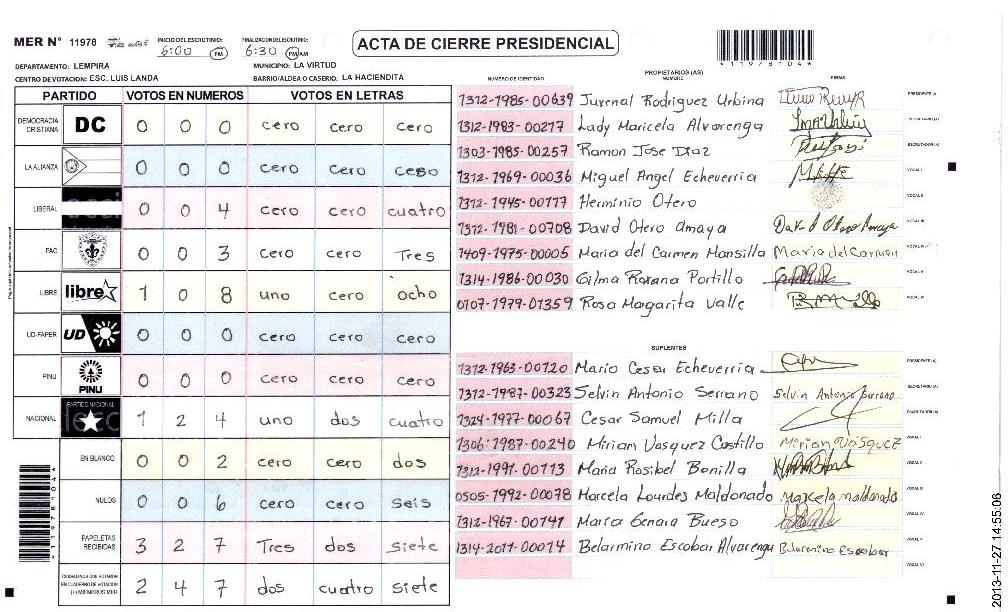 MER N° 11978
INICIO DEL ESCRUTINIO: 6:00 PM
FINALIZACION DEL ESCRUTINIO: 6:30 PM AM
ACTA DE CIERRE PRESIDENCIAL
*11978104*
DEPARTAMENTO: LEMPIRA
MUNICIPIO: LA VIRTUD
CENTRO DE VOTACION: ESC. LUIS LANDA
BARRIO/ALDEA O CASERIO: LA HACIENDITA
PARTIDO VOTOS EN NUMEROS VOTOS EN LETRAS
DEMOCRACIA CRISTIANA DC 0 0 0 cero cero cero
LA ALIANZA 0 0 0 cero cero cero
LIBERAL 0 0 4 cero cero cuatro
PAC 0 0 3 cero cero Tres
LIBRE libre 1 0 8 uno cero ocho
UD-FAPER UD 0 0 0 cero cero cero
PINU PINU 0 0 0 cero cero cero
NACIONAL PARTIDO NACIONAL 1 2 4 uno dos cuatro
EN BLANCO 0 0 2 cero cero dos
NULOS 0 0 6 cero cero seis
PAPELETAS RECIBIDAS 3 2 7 Tres dos siete
CIUDADANOS QUE VOTARON EN CUADERNO DE VOTACION (+) MIEMBROS MER 2 4 7 dos cuatro siete
*11978104*
PROPIETARIOS (AS)
NUMERO DE IDENTIDAD NOMBRE FIRMA
1312-1985-00639 Juvenal Rodriguez Urbina PRESIDENTE (A)
1312-1983-00217 Lady Maricela Alvarenga SECRETARIO (A)
1303-1985-00257 Ramon Jose Diaz ESCRUTADOR (A)
1312-1969-00036 Miguel Angel Echeverria VOCAL I
1312-1945-00117 Herminio Otero VOCAL II
1312-1981-00708 David Otero Amaya David Otero Amaya VOCAL III
1409-1975-00005 Maria del Carmen Mansilla Maria del Carmen VOCAL IV
1314-1986-00030 Gilma Roxana Portillo VOCAL V
0107-1979-01359 Rosa Margarita Valle VOCAL VI
SUPLENTES
1312-1963-00120 Mario Cesar Echeverria PRESIDENTE (A)
1312-1987-00323 Selvin Antonio Serrano Selvin Antonio Serrano SECRETARIO (A)
1324-1977-00067 Cesar Samuel Milla ESCRUTADOR (A)
1306-1987-00240 Miriam Vasquez Castillo Mirian Vasquez VOCAL I
1312-1991-00113 Maria Rosibel Bonilla VOCAL II
0505-1992-00078 Marcela Lourdes Maldonado Marcela maldonado VOCAL III
1312-1967-00141 Maria Genara Bueso VOCAL IV
1314-2011-00014 Belarmino Escobar Alvarenga Belarmino Escobar VOCAL V
VOCAL VI
2013-11-27 14:55:06